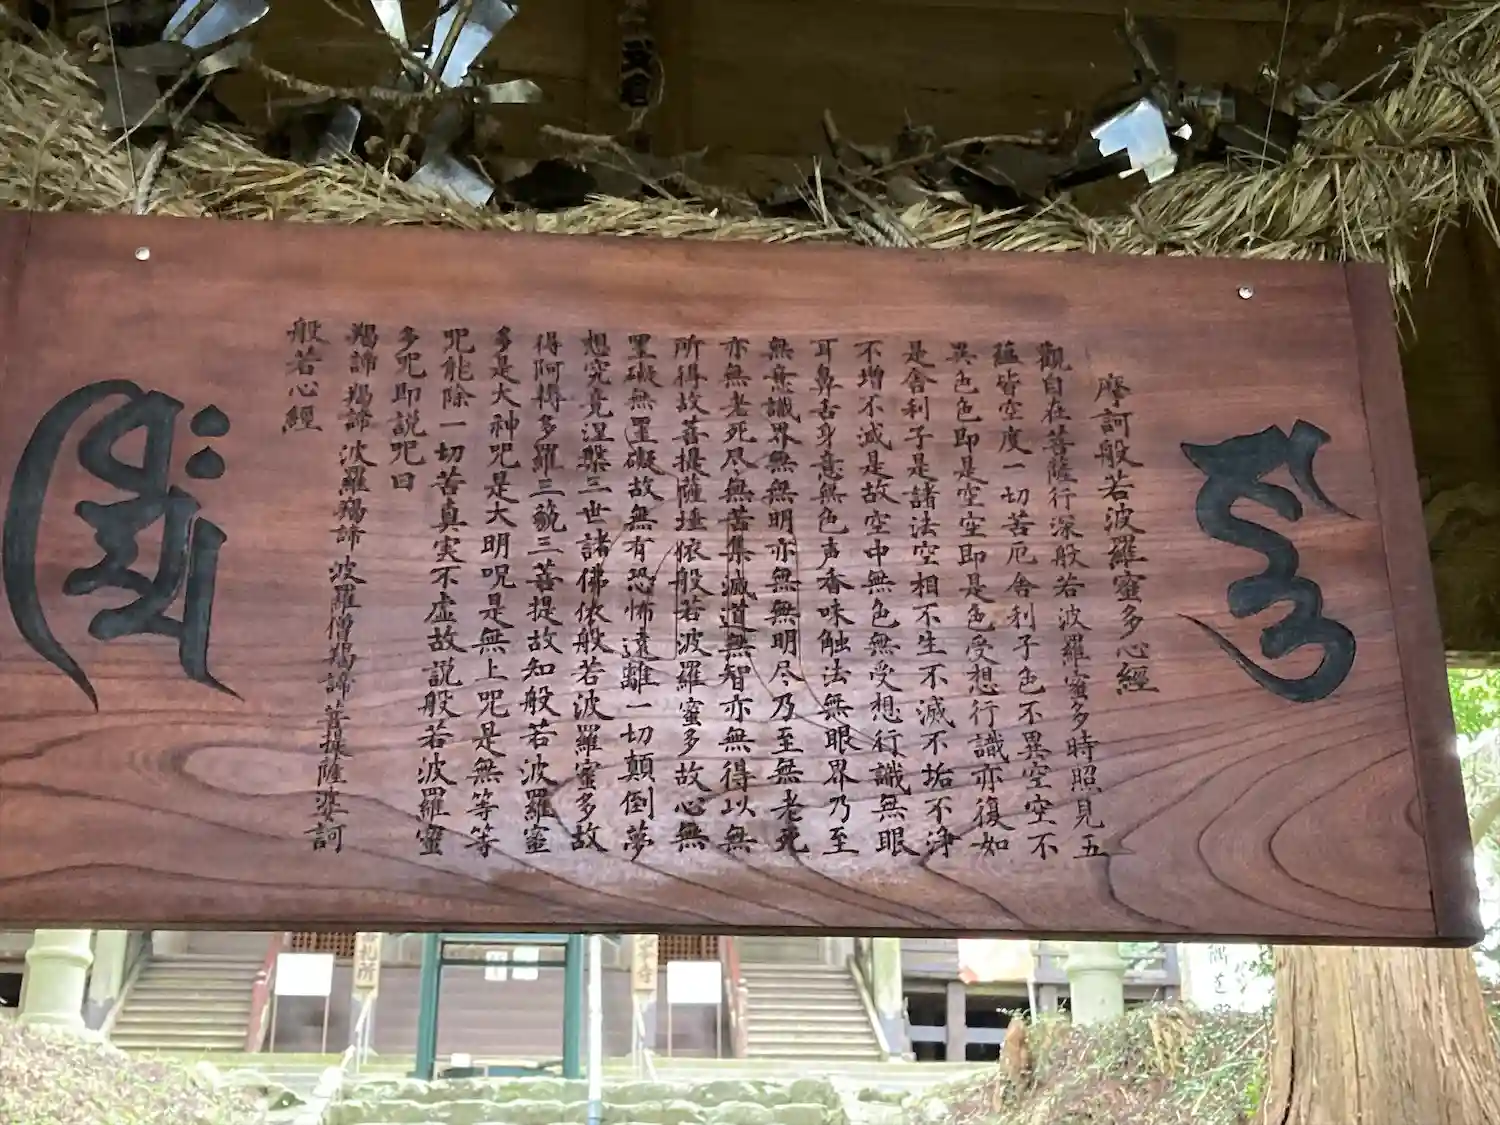 摩訶般若波羅蜜多心經
觀自在菩薩行深般若波羅蜜多時照見五
蘊皆空度一切苦厄舎利子色不異空空不
異色色即是空空即是色受想行識亦復如
是舎利子是諸法空相不生不滅不垢不浄
不増不減是故空中無色無受想行識無眼
耳鼻舌身意無色声香味触法無眼界乃至
無意識界無無明亦無無明尽乃至無老死
亦無老死尽無苦集滅道無智亦無得以無
所得故菩提薩埵依般若波羅蜜多故心無
罣礙無罣礙故無有恐怖遠離一切顛倒夢
想究竟涅槃三世諸佛依般若波羅蜜多故
得阿耨多羅三藐三菩提故知般若波羅蜜
多是大神呪是大明呪是無上呪是無等等
呪能除一切苦真実不虚故説般若波羅蜜
多呪即説呪曰
羯諦羯諦波羅羯諦波羅僧羯諦菩提薩婆訶
般若心經
札所